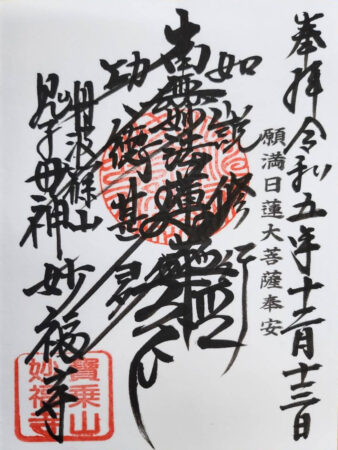 奉拝 令和五年十二月十三日
願満日蓮大菩薩奉安
如説修行
南無妙法蓮華経
功徳甚多
丹波篠山
鬼子母神 妙福寺
寶乗山
妙福寺